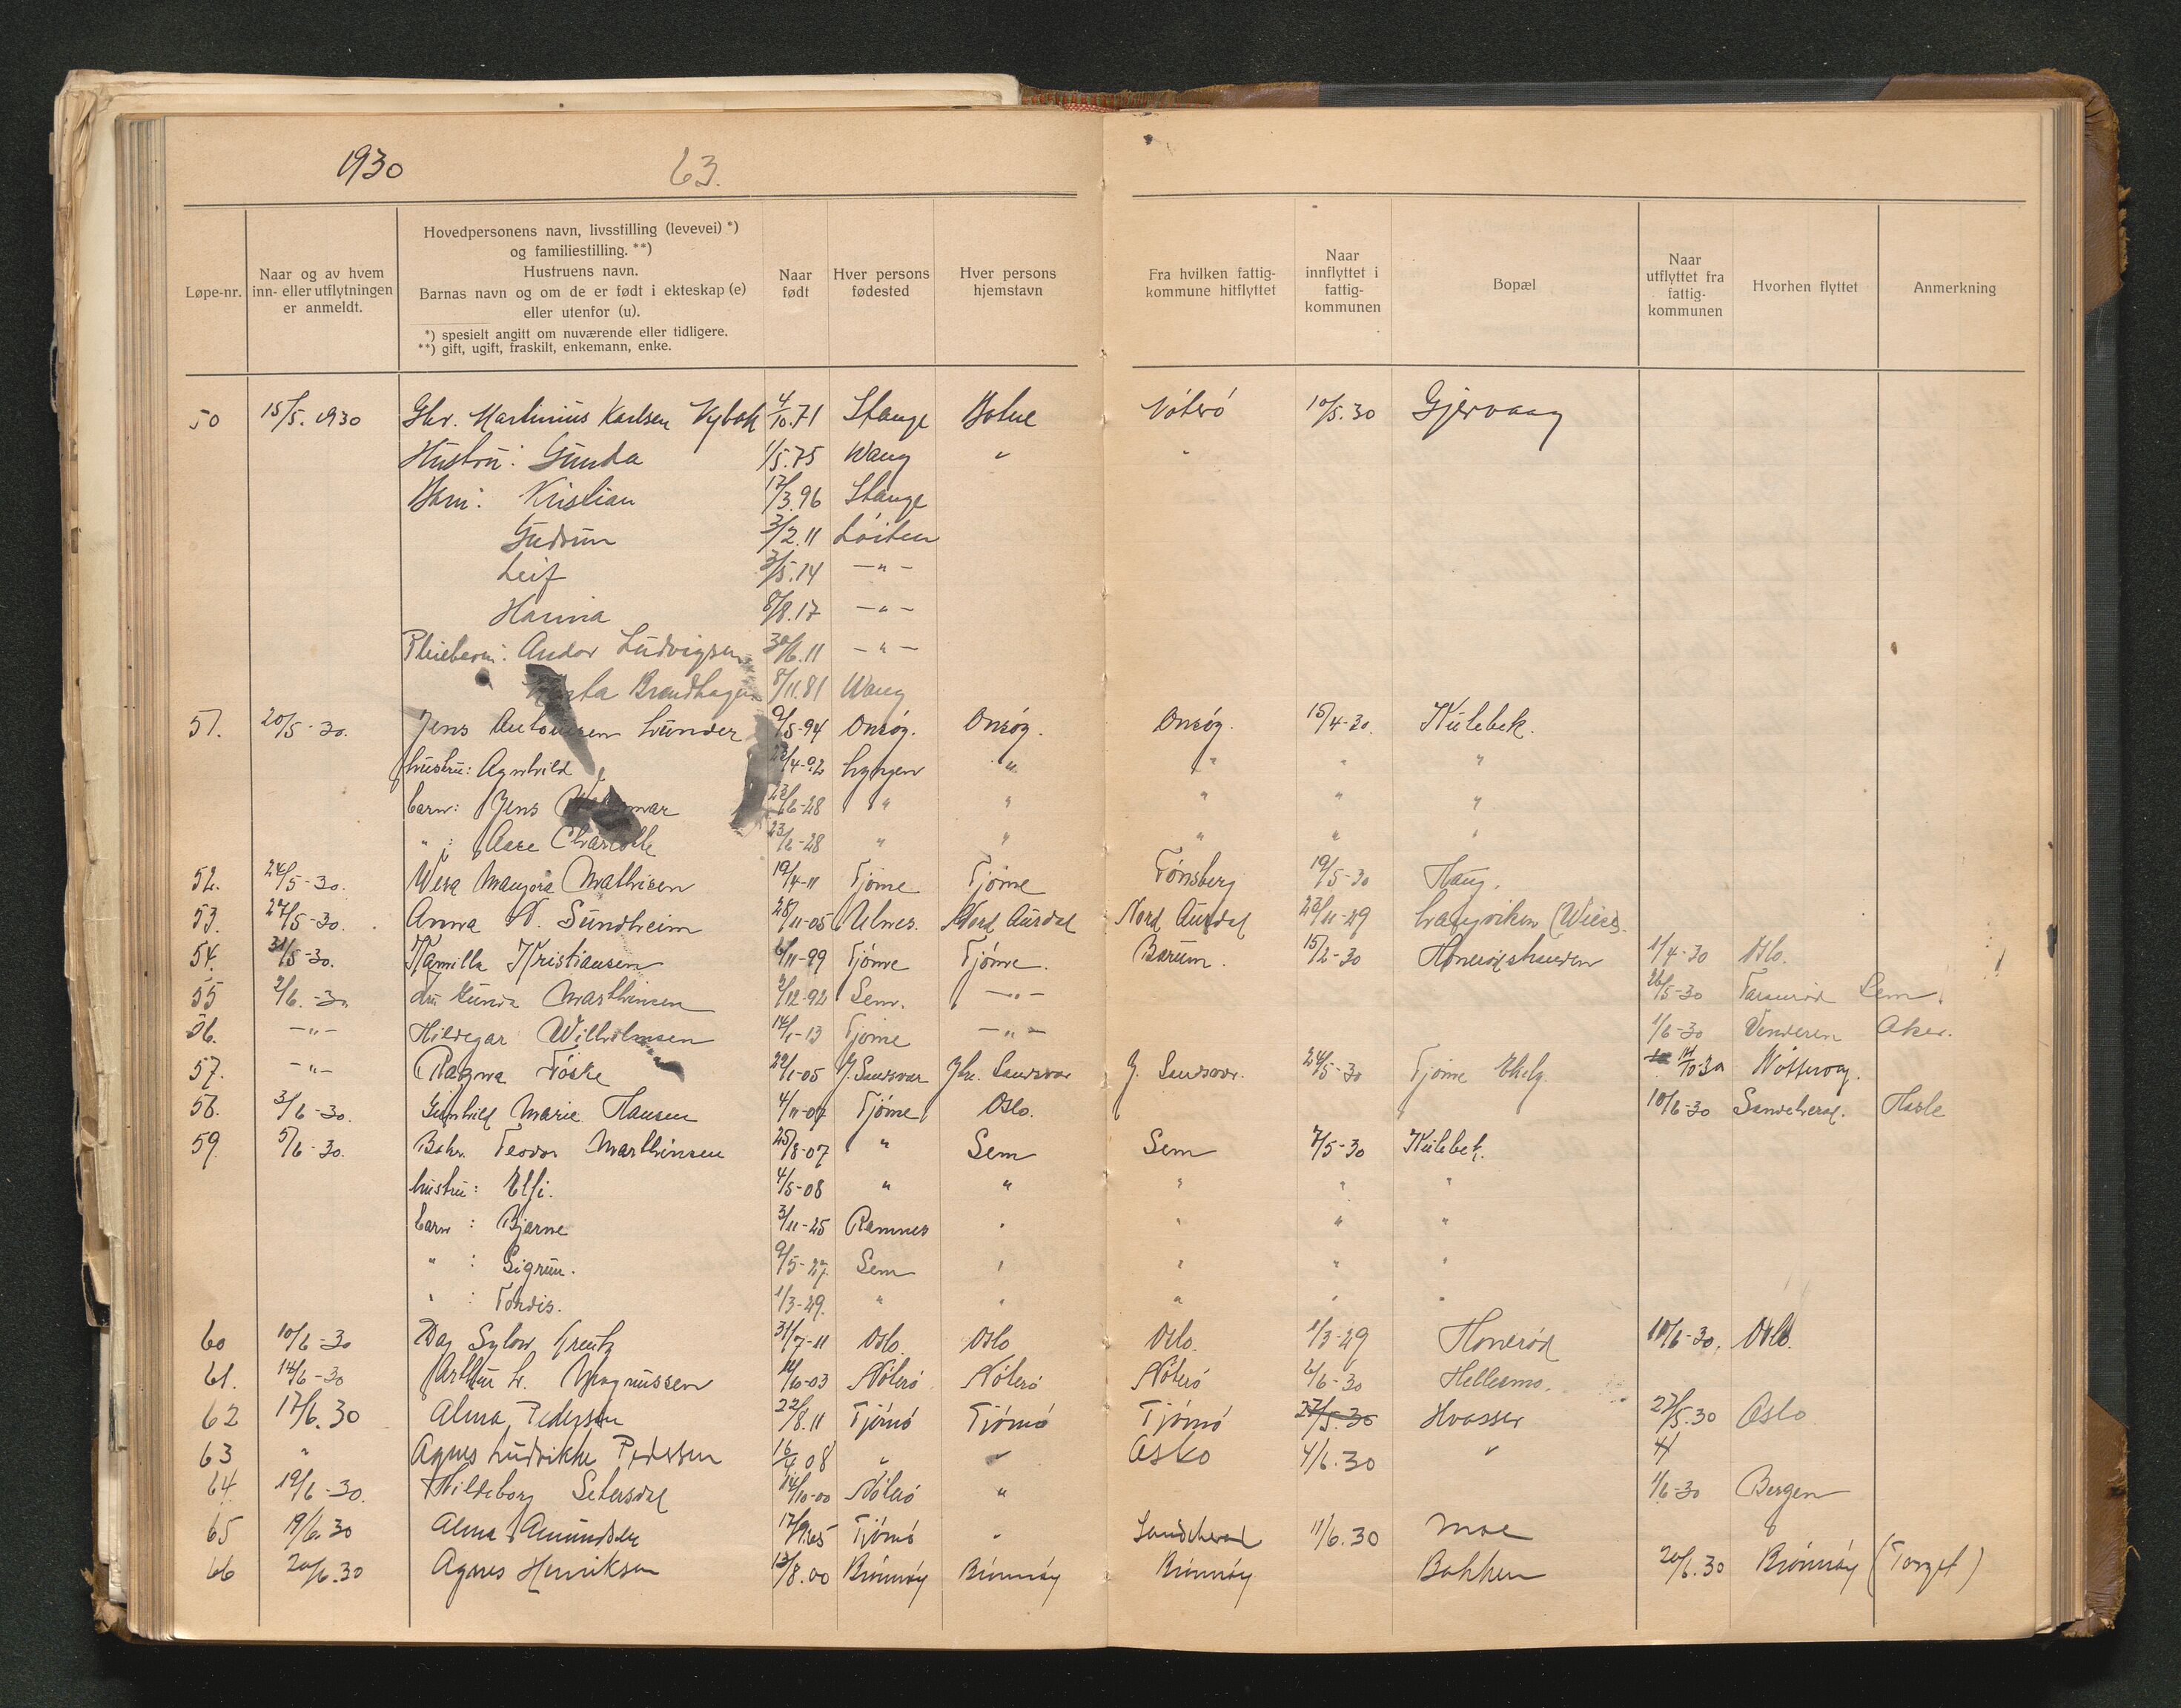 1930
63.
Løpe-nr.
Naar og av hvem
inn- eller utflytningen
er anmeldt.
Hovedpersonens navn, livsstilling (levevei) *)
og familiestilling. **)
Hustruens navn.
Barnas navn og om de er født i ekteskap (e)
eller utenfor (u).
*) spesielt angitt om nuværende eller tidligere.
**) gift, ugift, fraskilt, enkemann, enke.
Naar
født
Hver persons
fødested
Hver persons
hjemstavn
Fra hvilken fattig-
kommune hitflyttet
Naar
innflyttet i
fattig-
kommunen
Bopæl
Naar
utflyttet fra
fattig-
kommunen
Hvorhen flyttet
Anmerkning
50 15/5. 1930 Gbr. Martinius Karlsen 4/10.71 Stange Botne Nøterø 10/5.30 Gjervaag
Hustru: Gunda 1/5.75 Wang "
Barn: Kristian 17/3.96 Stange
Gudrun 3/2.11 Løiten
Leif 3/5.14 —"—
Hanna 8/8.17 —"—
Pleiebarn: Andor Ludvigsen 30/6.11 —"—
Brandhagen 8/11.81 Wang
51. 20/5-30. Jens Antonsen Lunder 9/5-94 Onsøy. Onsøy. Onsøy. 15/4-30. Kulebek.
hustru: Agnhild 22/4-92 Lyngen " " " "
barn: Jens 23/6-28 " " " " "
" : Aase Charlotte 23/6-28 " " " " "
52. 24/5-30. Wera Mathisen 19/4-11 Tjøme Tjøme Tønsberg 19/5-30 Haug.
53. 27/5-30. Anna N. Sundheim 28/11-05 Ulnes. Nord Aurdal Nord Aurdal 23/11-29 Langviken
54. 31/5-30. Kamilla Kristiansen 6/11-99 Tjøme Tjøme. Bærum. 15/2-30 1/4-30 Oslo.
55 2/6.-30 Gunda Marthinsen 2/12-92 Sem. —"— 26/5-30 Sem.
56. —"— Hildegar Wilhelmsen 14/1-13 Tjøme —"— 1/6-30 Vinderen Aker.
57. —"— Ragna Føske 22/1-05 Y. Sandsvær Ytre. Sandsvær Y. Sandsvær. 24/5-30 Tjøme 14/10-30 Nøtterøy.
58. 3/6-30. Gunhild Marie Hansen 4/11-07 Tjøme Oslo. " 10/6-30 Sandeherad. Hasle
59. 5/6-30. Teodor Marthinsen 25/8-07 " Sem Sem 7/5-30 Kulebek.
hustru: Elfi. 4/5-08 " " " " "
barn : Bjarne 3/11-25 Ramnes " " " "
" : Sigrun. 9/5-27. Sem " " " "
" : Tordis. 1/3-29. " " " " "
60 10/6-30 Dag Sylow Kreutz 31/7-11 Oslo. Oslo Oslo. 1/3-29 Honerød 10/6-30. Oslo.
61. 14/6-30 Arthur L. Magnussen 11/10-03 Nøterø Nøterø Nøterø 2/6-30 Hellesmo.
62 17/6.30 Alma Pedersen 22/8.11 Tjømø Tjømø Tjømø 27/5.30 Hvasser 27/5.30 Oslo
63 " Agnes Ludvikke Pedersen 16/4 08 " " Oslo 4/6.30 "
64 19/6-30. Hildeborg Setersdal 14/10-00 Nøterø " 1/6-30 Bergen
65 19/6.30 Alma Amundsen 17/9.65 Tjømø " Sandeherad 11/6.30 Moe
66 20/6.30 Agnes Henriksen 13/8.00 Brønnøy Brønnøy Brønnøy Bakken 20/6.30 Brønnøy (Torget)